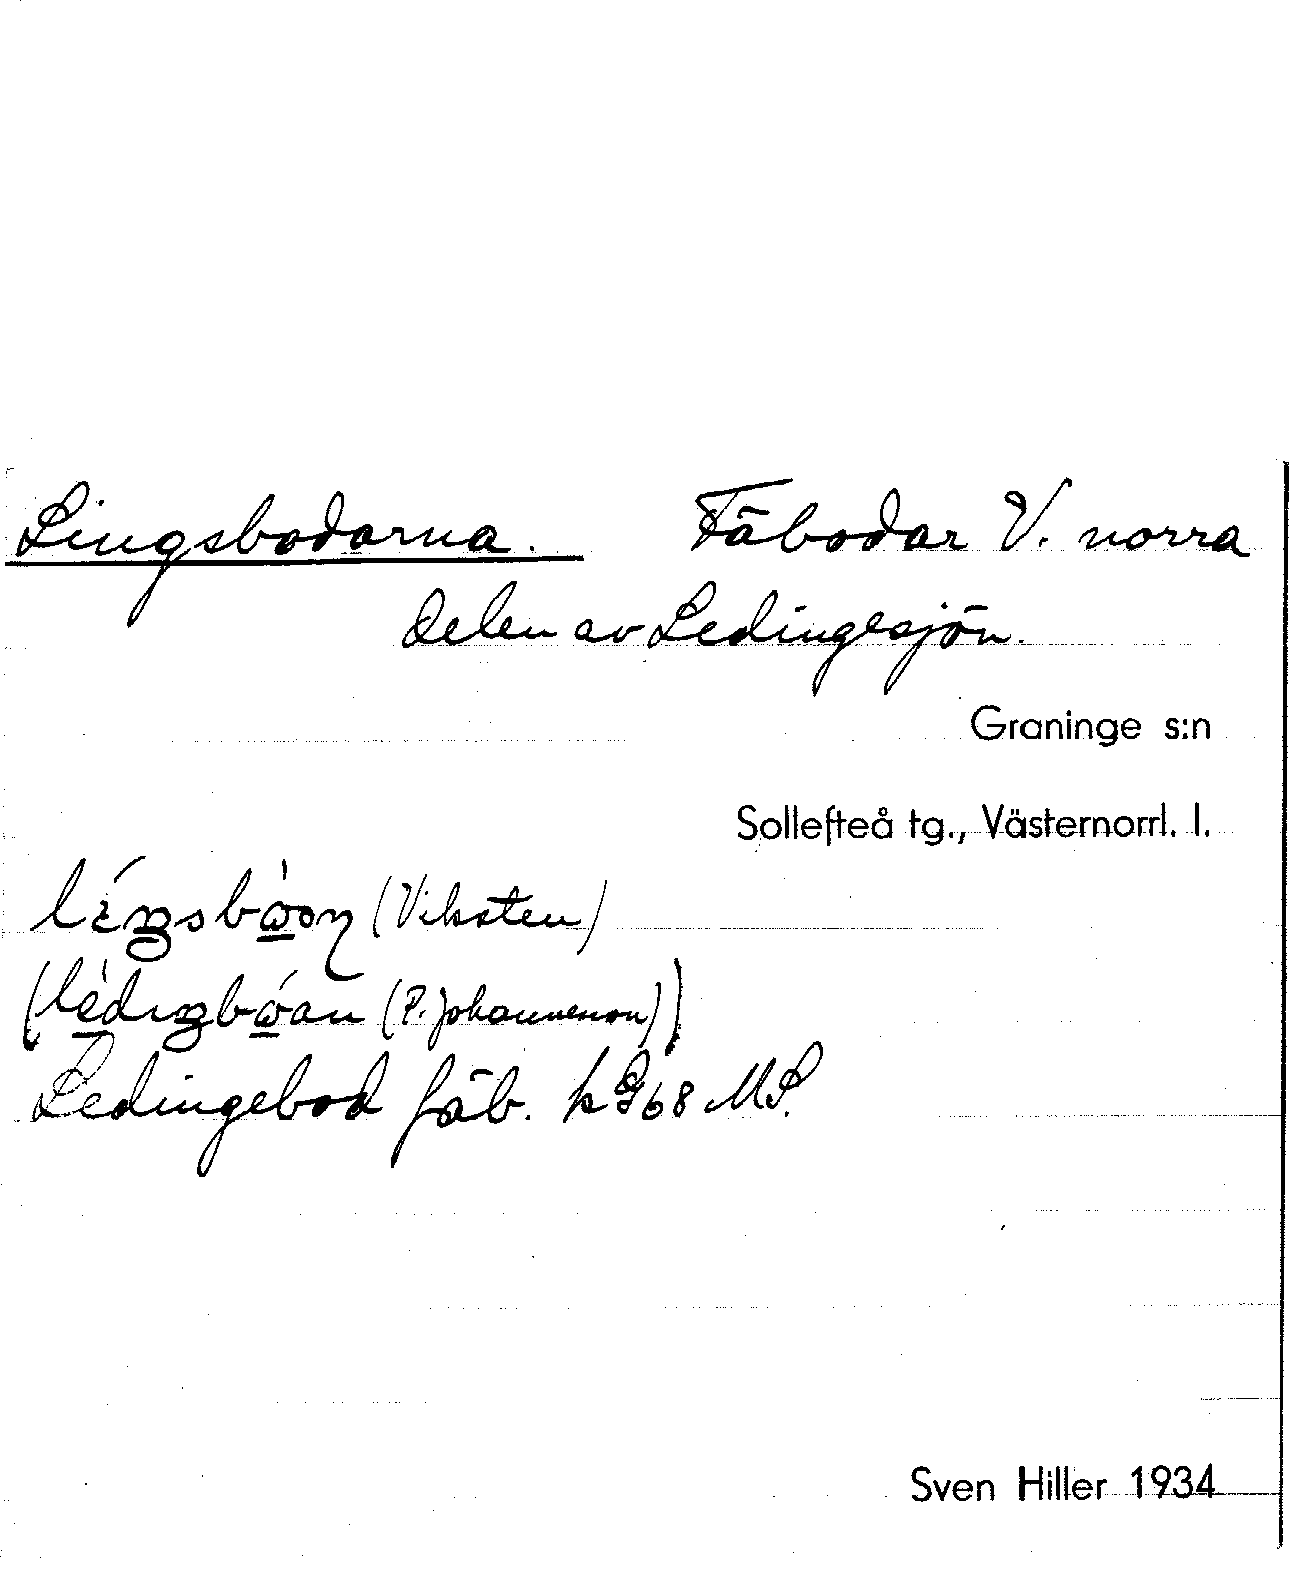 Lingsbodarna. Fäbodar V. norra
delen av Ledingesjön.
Graninge s:n
Sollefteå tg., Västernorrl. l.
(Viksten)
(P. Johannesson))
Ledingebod fäb. k 968 M.S.
Sven Hiller 1934